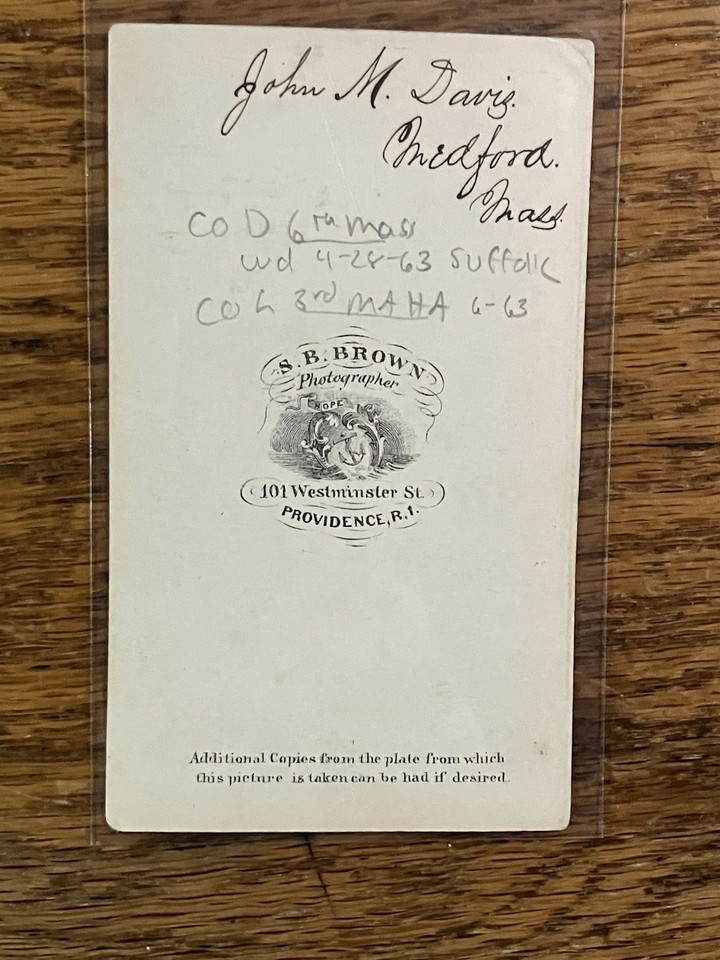 John M. Davis.
Medford.
Mass.
CO D 6TH MASS
wd 4-28-63 SUFFOLK
CO G 3rd MA HA 6-63
S. B. BROWN
Photographer
HOPE
101 Westminster St.
PROVIDENCE, R.I.
Additional Copies from the plate from which
this picture is taken can be had if desired.